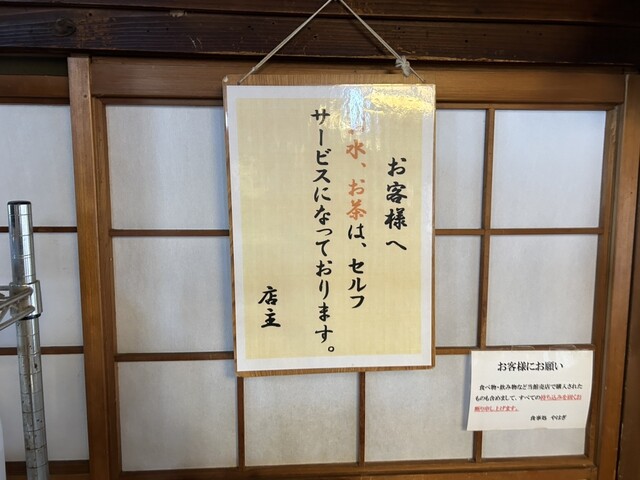 お客様へ
お水、お茶は、セルフ
サービスになっております。
店主
お客様にお願い
食べ物・飲み物など当館売店で購入された
ものも含めまして、すべての持ち込みを固くお
断り申し上げます。
食事処 やはぎ